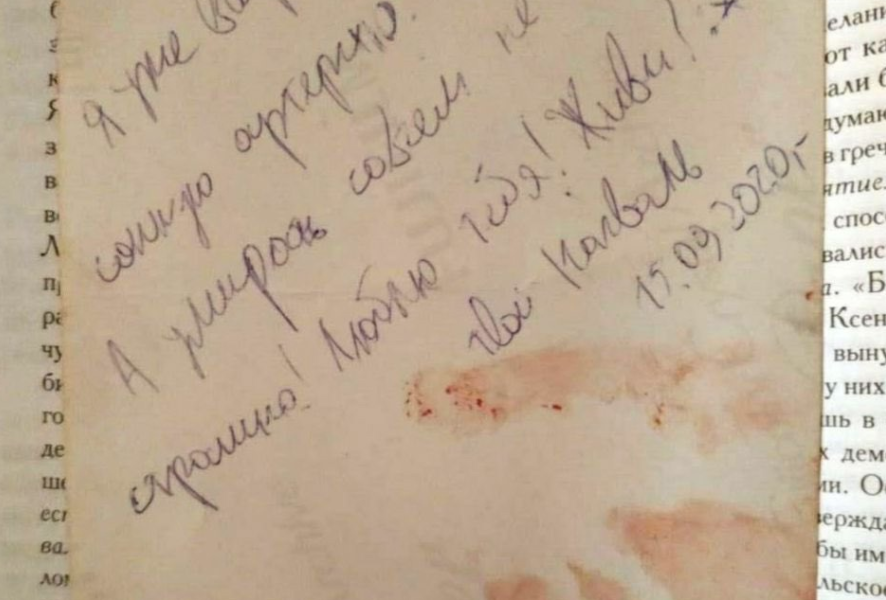 Я уже
сонную артерию.
А умирать совсем не
страшно! Люблю тебя! Живи!
твой
15.09.2020г
з
к
Я
з
в
Л
ра
чу
би
го
де
ше
ва
от ка
али б
думаю
в греч
ятие
спос
а. «Б
Ксен
выну
у них
шь в
дем
ии. О
вержда
бы им
льское